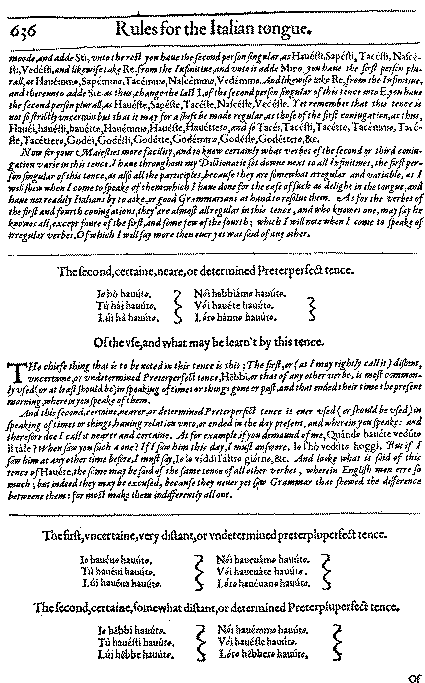 636 Rules for the Italian tongue.
moode, and adde Sti, vnto the rest you have the second person singular, as Hauésti, Sapésti, Tacésti, Nascé-
sti, Vedésti, and likewise take Re. from the Infinitiue, and vnto it adde Mmo, you have the first person plu-
rall, as Hauémmo, Sapémmo, Tacémmo, Nascémmo, Vedémmo. And likewise take Re. from the Infinitiue,
and thereunto adde Ste. as thus, change the last I. of the second person singular of this tence into E. you haue
the second person plurall, as Hauéste, Sapéste, Tacéste, Nascéste, Vecéste. Yet remember that this tence is
not so strictly vncertain but that it may for a shift be made regular, as those of the first coniugation, as thus,
Hauéi, hauésti, hauétte, Hauémmo, Hauéste, Hauéttero, and so Tacéi, Tacésti, Tacétte, Tacémmo, Tacé-
ste, Tacéttero, Godéi, Godésti, Godétte, Godémmo, Godéste, Godéttero, &c.
Now for your Maiesties more facility, and to know certainly what verbes of the second or third coniu-
gation varie in this tence, I haue throughout my Dictionarie set downe next to all Infinitiues, the first per-
son singular of this tence, as also all the participles, because they are somewhat irregular and variable, as I
will shew when I come to speake of them which I haue done for the ease of such as delight in the tongue, and
haue not readily Italians by to aske, or good Grammarians at hand to resolue them. As for the verbes of
the first and fourth coniugations, they are almost all regular in this tence, and who knowes one, may say he
knowes all, except foure of the first, and some few of the fourth; which I will note when I come to speake of
irregular verbes. Of which I will say more then euer yet was said of any other.
The second, certaine, neare, or determined Preterperfect tence.
Io hò hauúto. Nói habbiámo hauúto.
Tù hái hauúto. Vói hauéte hauúto.
Lúi há hauúto. Lóro hánno hauúto.
Of the vse, and what may be learn't by this tence.
THe chiefe thing that is to be noted in this tence is this; The first, or (as I may rightly call it) distant,
vncertaine, or vndetermined Preterperfect tence, Hébbi, or that of any other verbe, is most common-
ly vsed (or at least should be) in speaking of times or things gone or past, and that ended their time the present
morning, wherein you speake of them.
And this second, certaine, nearer, or determined Preterperfect tence is euer vsed (or should be vsed) in
speaking of times or things hauing relation vnto, or ended in the day present, and wherein you speake: and
therefore doe I call it nearer and certaine. As for example if you demaund of me, Quándo hauéte vedúto
il tále? When saw you such a one? If I saw him this day, I must answere, Io l'hò vedúto hoggi. But if I
saw him at any other time before, I must say, Io lo viddi l'altro giórno, &c. And looke what is said of this
tence of Hauére, the same may be said of the same tence of all other verbes, wherein English men erre so
much; but indeed they may be excused, because they neuer yet saw Grammar that shewed the difference
betweene them: for most make them indifferently all one.
The first, vncertaine, very distant, or vndetermined preterpluperfect tence.
Io hauéuo hauúto. Nói haueuámo hauúto.
Tú hauéui hauúto. Vói haueuáte hauúto.
Lúi hauéua hauúto. Lóro hauéuano hauúto.
The second, certaine, somewhat distant, or determined Preterpluperfect tence.
Io hébbi hauúto. Nói hauémmo hauúto.
Tú hauésti hauúto. Vói hauéste hauúto.
Lúi hébbe hauúto. Lóro hébbero hauúto.
Of